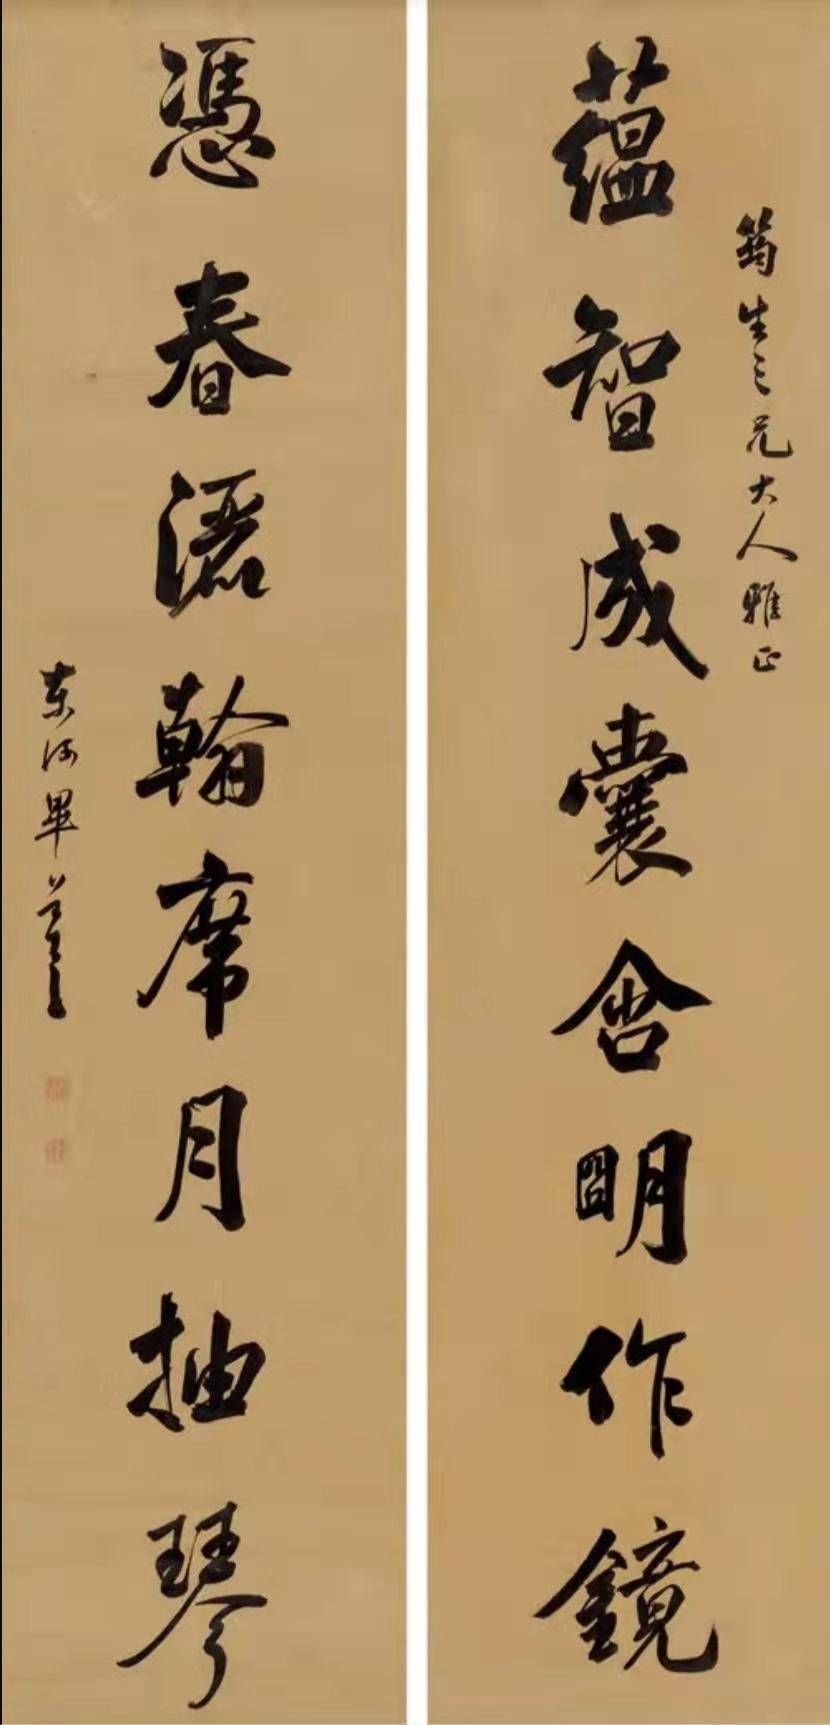 筠生三兄大人雅正
藴智成囊含明作鏡
憑春灑翰席月抽琴
東河畢道遠